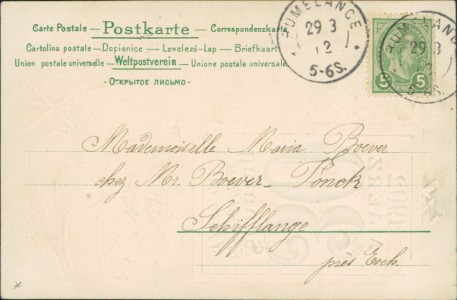 Carte Postale – Postkarte – Correspondenzkarte
Cartolina postale – Dopisnice – Levelező-Lap – Briefkaart
Union postale universelle – Weltpostverein – Unione postale universale
Открытое письмо
RUMELANGE
29 3
12
5-6S.
RUMELANGE
29 3
5-6S.
5 5
Mademoiselle Maria Boever
chez Mr. Boever-Fonck
Schifflange
près Esch.